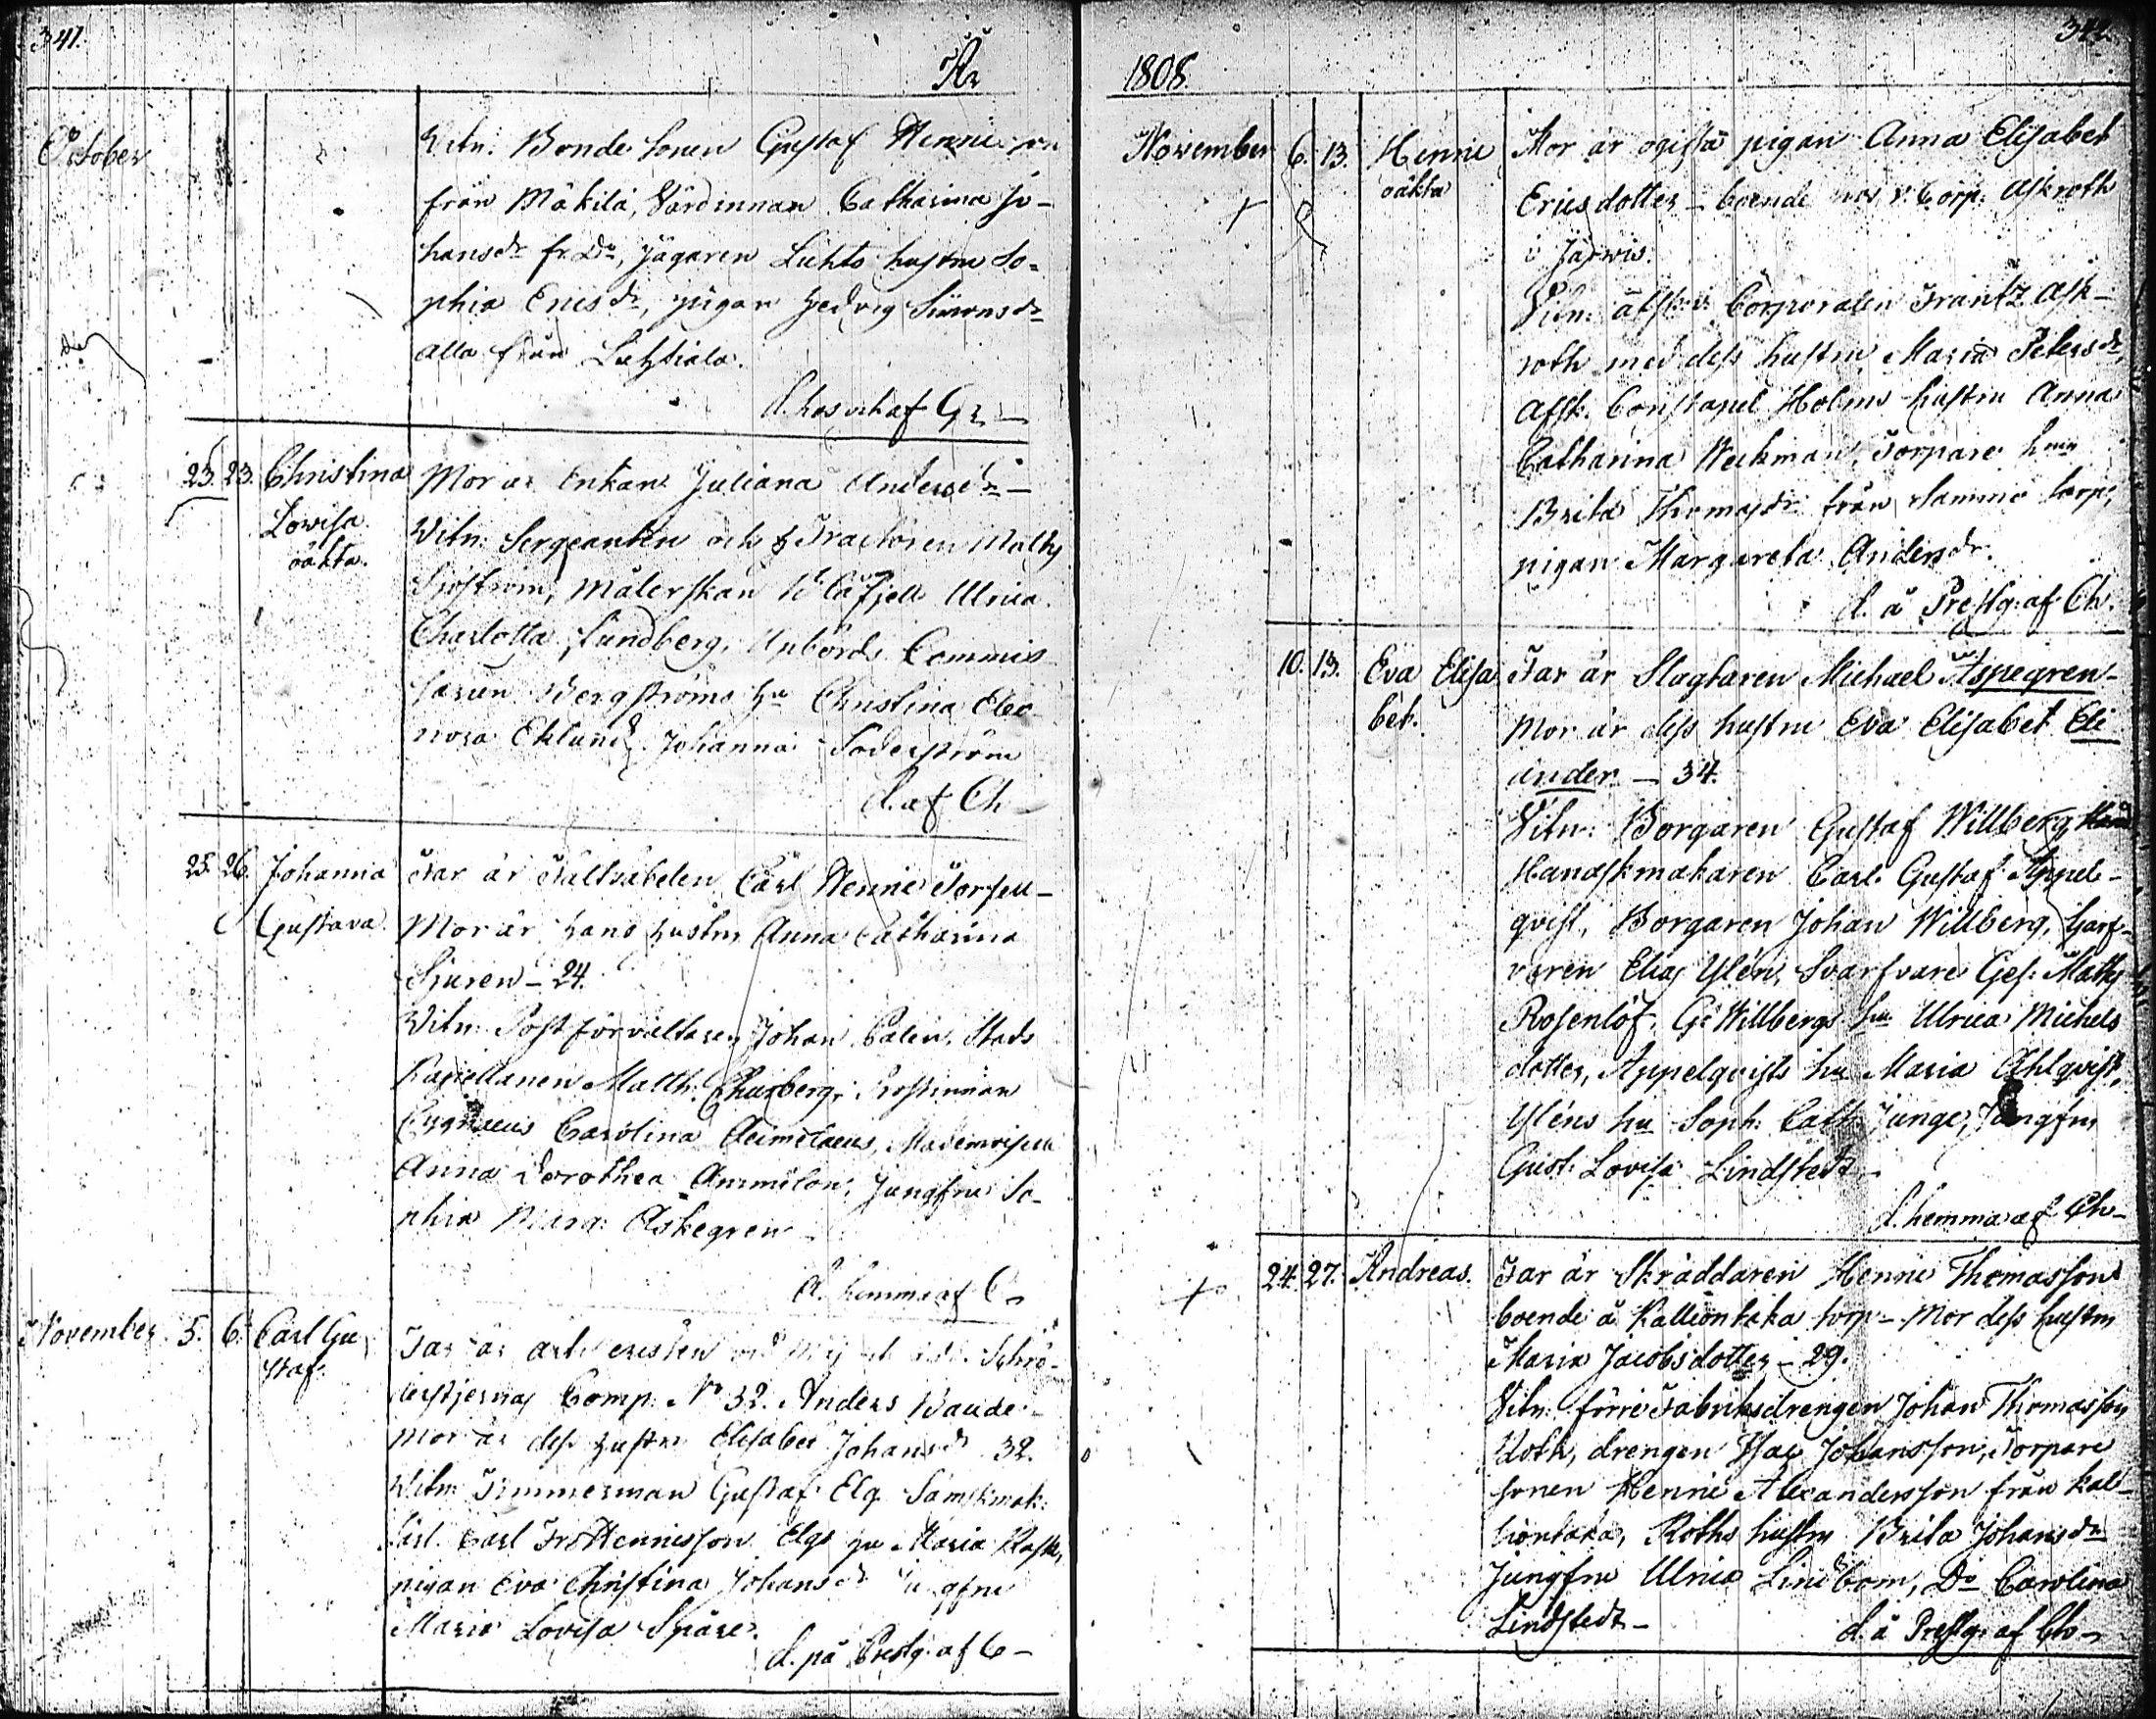 341.
År
October
Witn: Bonde Sonen Gustaf Hennison
från Mäkilä, Värdinnan Catharina Jo-
hansdr fr. Do, Jägaren Lihto hustru So-
phia Ericsdr, pigan Hedvig Simonsdr
alla från
d. af
23. 23. Christina Mor är Enkan Juliana Andersdr -
Lowisa
oäkta.
Witn: Sergeanten och Tracteuren Matths
Sjöström, Målerskan
Charlotta Sundberg, Upbörds Commis
sarien Bergströms Hu Christina Eleo
nora Eklund, Johanna Söderström
d. af Ch -
25. 26. Johanna Far är Carl Henric
Gustava. Mor är hans hustru Anna Catharina
- 24.
Witn: Postförvaltaren Johan Calén, Stads
Kapellanen Matth: Churberg, Prostinnan
Cygnaeus Carolina Aeimelaeus, Mademoisell
Anna Dorothea Jungfru So-
phia Marg: Askegren
d. hemma af C
November 5. 6. Carl Gu
staf.
Far är
Comp. No 32. Anders
Mor är dess hustru Elisabet Johansdr 32.
Witn: Timmerman Gustaf Elg
Carl Fr. Hennisson Elgs hu Maria
pigan Eva Christina Johansdr Jungfru
Maria Lovisa Spåre.
d. på Prestg. af C -
342.
1808.
November 6. 13. Henric Mor är ogifta pigan Anna Elisabet
oäkta
Ericsdotter - boende hos v. Corp. Askroth
i Järwis.
Vitn: afsk: v. Corporalen Frantz Ask-
roth med dess hustru Maria Petersdr,
Afsk. Constapel Holms hustru Anna
Catharina Weckman, Torpare hun
Brita Thomasdr från samma torp,
pigan Margareta Andersdr.
d. å Prestg: af Ch.
10. 13. Eva Elisa Far är Slagtaren Michael Aspegren -
bet.
Mor är dess hustru Eva Elisabet Eli
ander - 34.
Vitn: Borgaren Gustaf Willberg
Handskmakaren Carl Gustaf Appel-
qvist, Borgaren Johan Willberg, Garf-
varen Elias Ylén, Svarfvare Ges: Matths
Rosenlöf, G: Willbergs hu Ulrica Michels
dotter, Appelqvists hu Maria Ahlqvist,
Yléns hu Soph: Cath: Junge, Jungfru
Gust: Lovisa Lindstedt -
d. hemma af Ch -
24. 27. Andreas. Far är Skräddaren Henric Thomasson
boende å Kallionkaka torp - Mor dess hustru
Maria Jacobsdotter - 29.
Vitn: förre Fabriksdrengen Johan Thomasson
Roth, drengen Isac Johansson, Torpare
Sonen Henric Alexandersson från Kal-
lionkaka, Roths hustru Brita Johansdr
Jungfru Ulrica Lindbom, Do Carolina
Lindstedt -
d. å Prestg: af Ch -